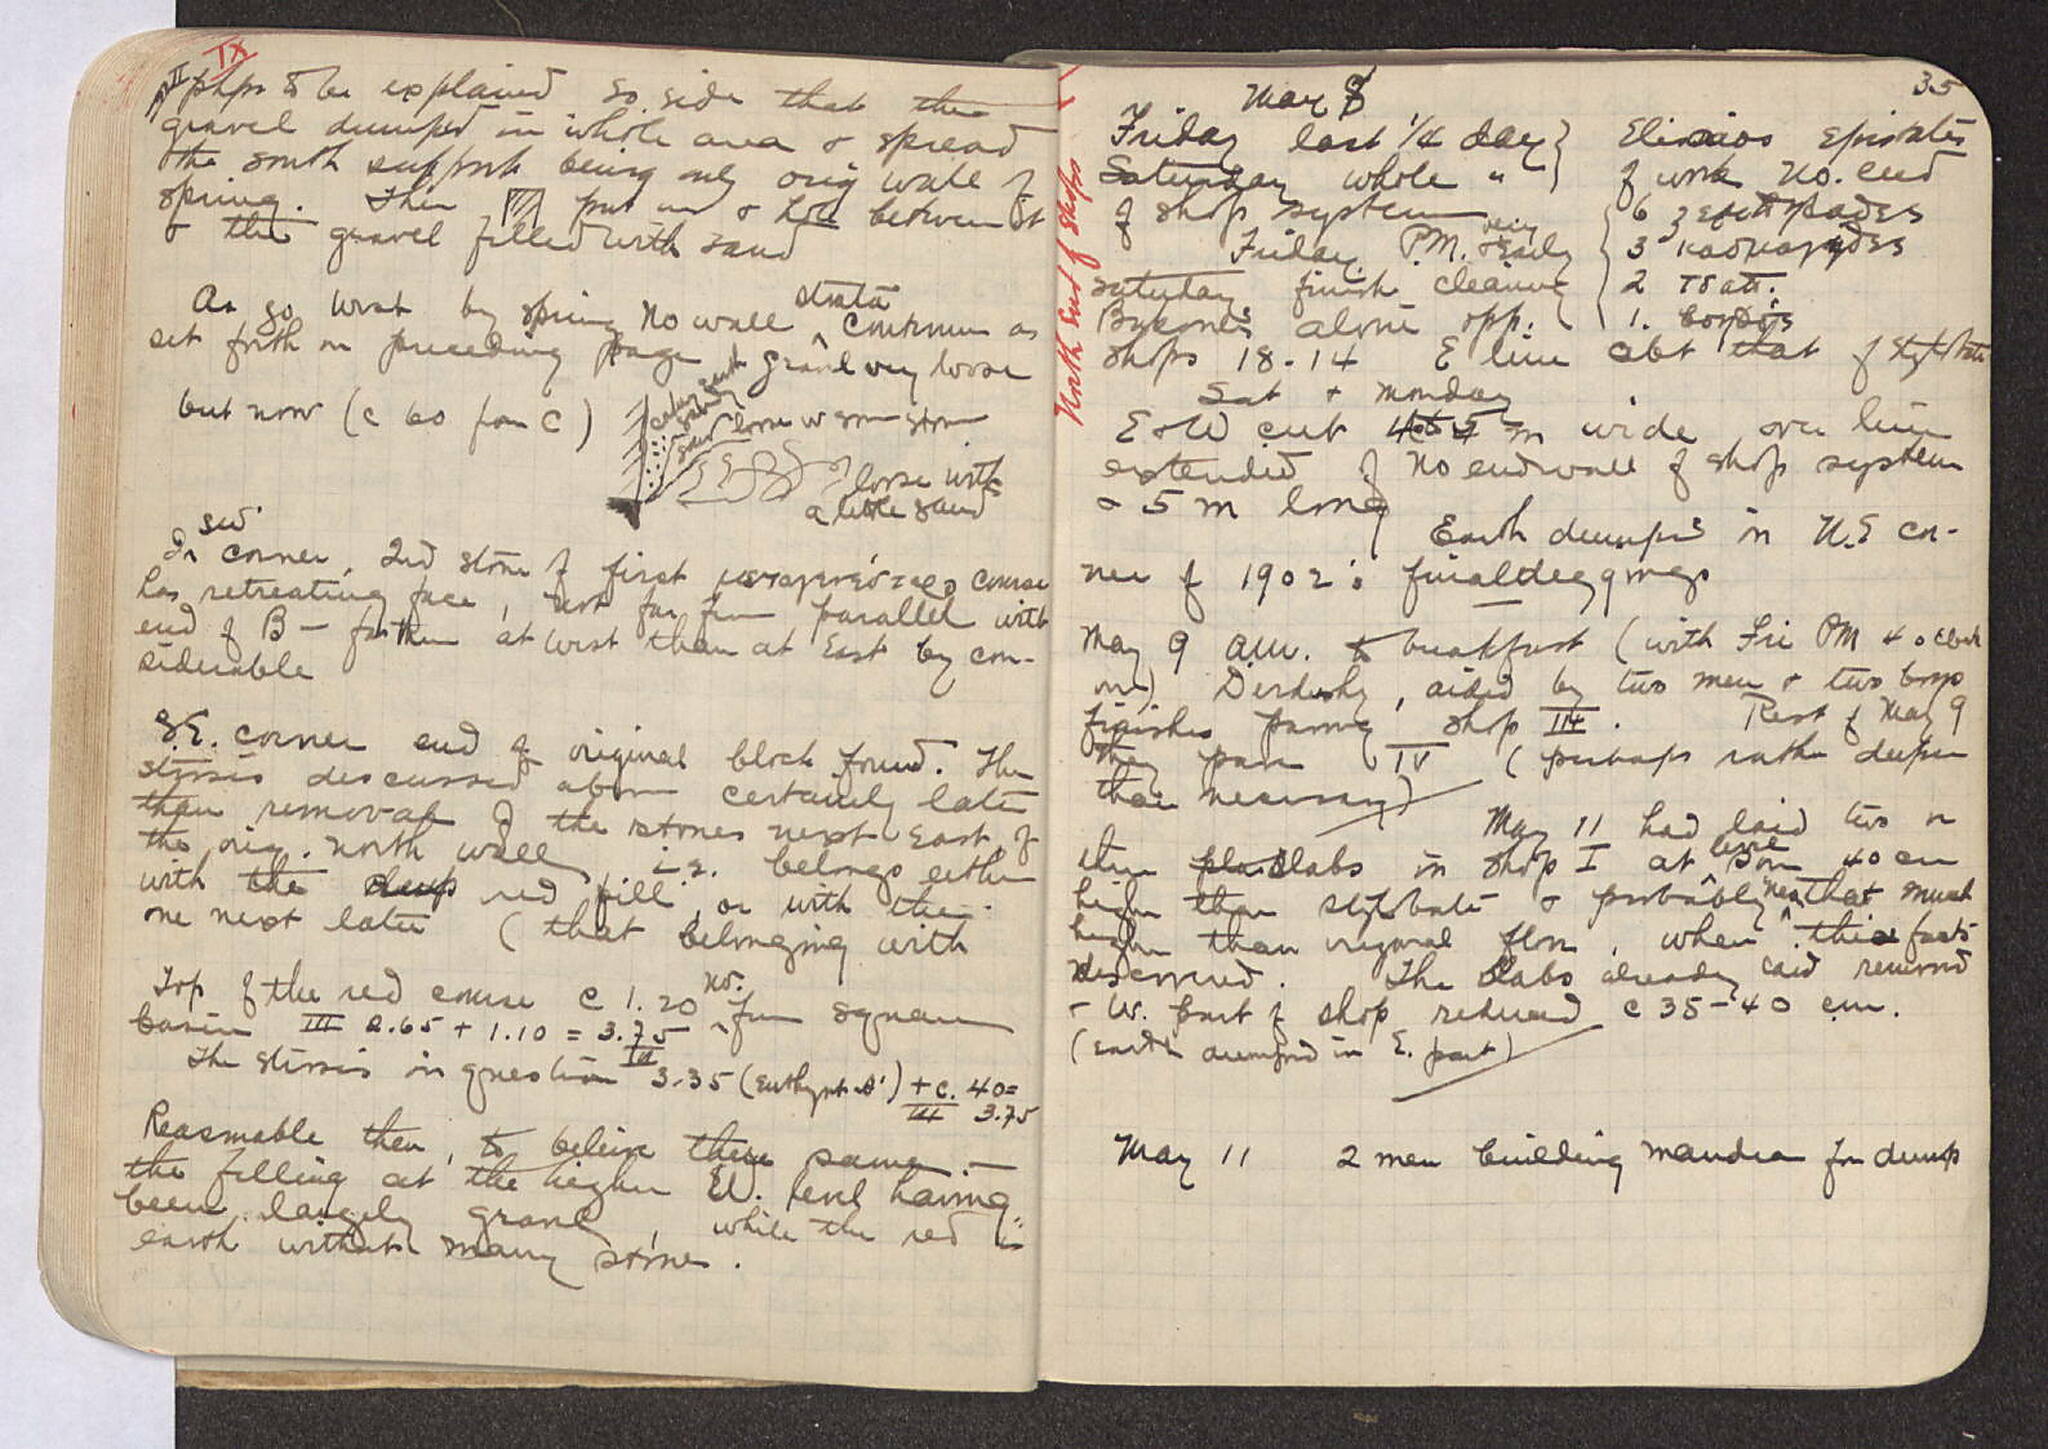 TX
III
phps to be explained so. side that the
gravel dumped in whole area & spread
the south support being only orig wall of
spring. Then put in & hole between it
& the gravel filled with sand
As go west by spring no wall strata continue as
set forth on preceding page & gravel very loose
but now (c 60 from C)
loose w some stone
loose with
a little sand
In SW corner, 2nd stone of first course
has retreating face, not far from parallel with
end of B — farther at west than at East by con-
siderable
S.E. corner end of original block found. The
stosis discussed above certainly later
than removal of the stones next East of
the orig. north wall i.e. belongs either
with the deep red fill, or with the
one next later (that belonging with
Top of the red course c 1.20 no. from square
basin III 2.65 + 1.10 = 3.75
The stosis in question III 3.35 (Euthynt. A') + c. 40 =
III 3.75
Reasonable then, to believe these same. —
the filling at the higher W. level having
been largely gravel, while the red is
earth without many stones.
35
North end of shops
May 8
Friday last 1/4 day
Saturday whole "
of shop system
Elissios epistates
of work No. end
6
3
2
1.
Friday P.M. & very early
Saturday finish cleaning
alone opp.
shops 18-14 E line abt that of stylobate
Sat & Monday
E & W cut 4 to 5 m wide over line
extended of No end wall of shop system
& 5 m long
Earth dumped in N.E cor-
ner of 1902's final diggings
May 9 a.m. to breakfast (with Fri PM 4 o clock
on) , aided by two men & two boys
finishes paring shop III. Rest of May 9
they pare IV (perhaps rather deeper
than necessary)
May 11 had laid two or
three slabs in shop I at level some 40 cm
higher than stylobate & probably near that much
higher than original floor, when this facts
discovered. The slabs already laid removed
& W. part of shop reduced c 35-40 cm.
(earth dumped in E. part)
May 11 2 men building mandra for dump